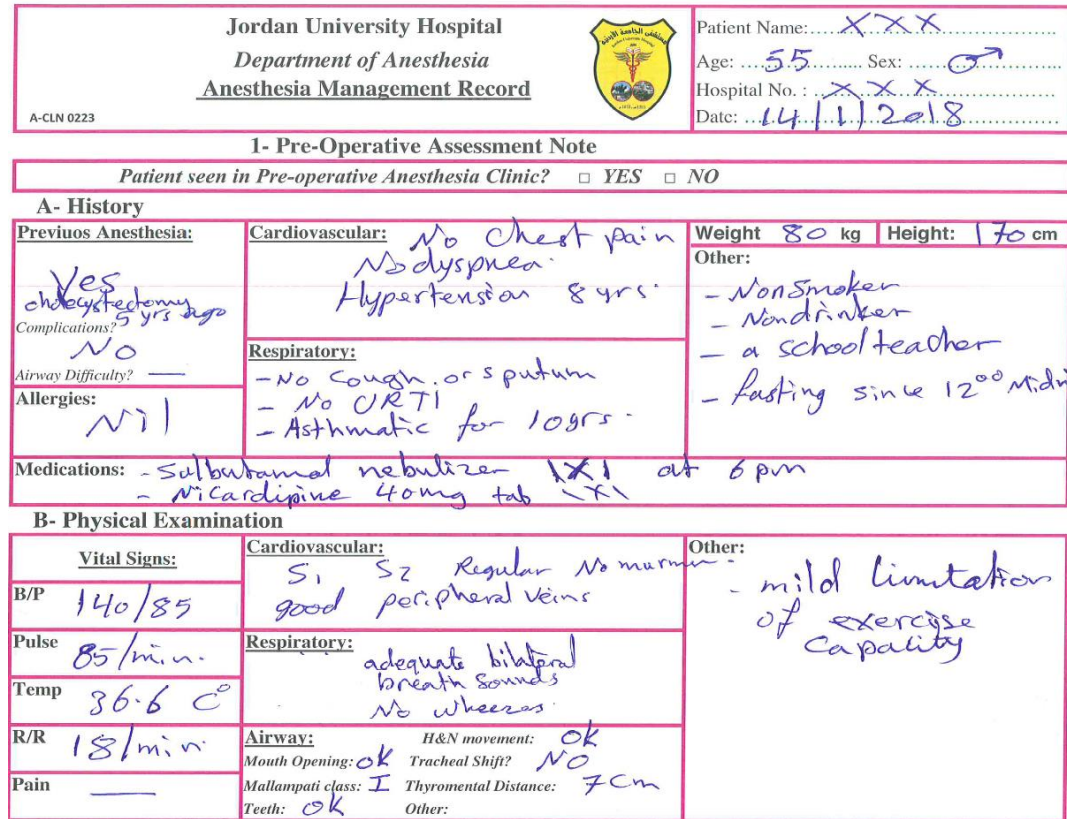 Jordan University Hospital
Department of Anesthesia
Anesthesia Management Record
A-CLN 0223
Patient Name: XXX
Age: 55 Sex: ♂
Hospital No. : XXX
Date: 14/1/2018
1- Pre-Operative Assessment Note
Patient seen in Pre-operative Anesthesia Clinic? □ YES □ NO
A- History
Previuos Anesthesia:
Yes
cholecystectomy
5 yrs ago
Complications?
No
Airway Difficulty? —
Allergies:
Nil
Cardiovascular: No Chest pain
No dyspnea.
Hypertension 8 yrs.
Respiratory:
- No Cough. or sputum
- No URTI
- Asthmatic for 10yrs.
Weight 80 kg Height: 170 cm
Other:
- Nonsmoker
- Nondrinker
- a school teacher
- fasting since 12⁰⁰ Midn
Medications: - Salbutamol nebulizer 1X1 at 6 pm
- Nicardipine 40mg tab 1X1
B- Physical Examination
Vital Signs:
B/P 140/85
Pulse 85/min.
Temp 36.6 C°
R/R 18/min
Pain —
Cardiovascular:
S1 S2 Regular No murmur.
good peripheral veins
Respiratory:
adequate bilateral
breath sounds
No wheezes.
Airway: H&N movement: OK
Mouth Opening: OK Tracheal Shift? NO
Mallampati class: I Thyromental Distance: 7 Cm
Teeth: OK Other:
Other:
- mild limitation
of exercise
capacity